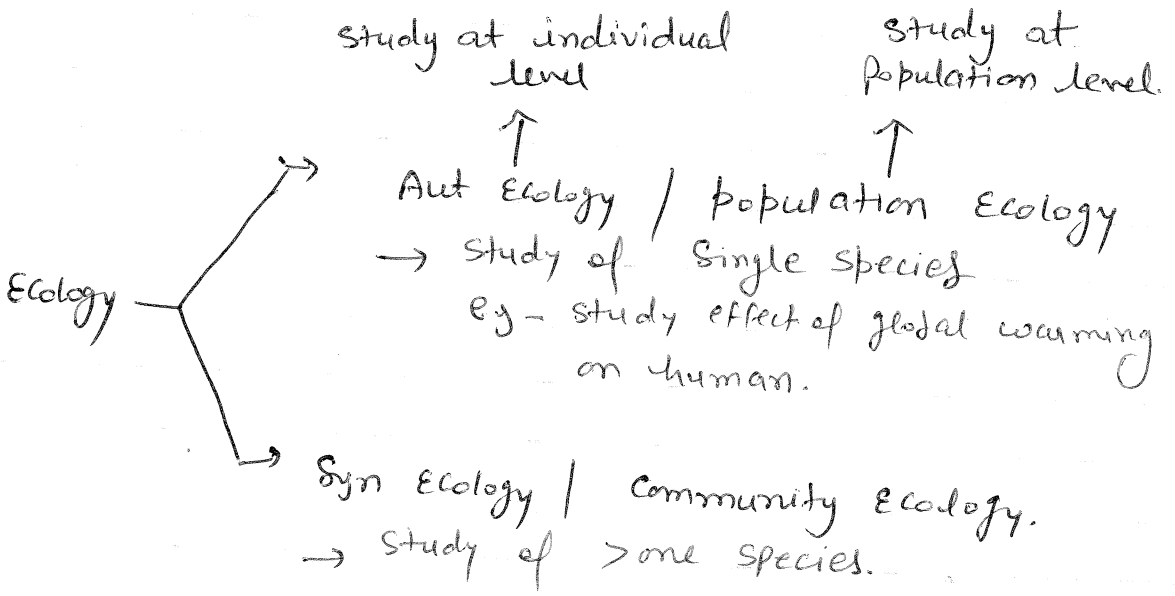 Study at individual level
Study at Population level.
Aut Ecology / population Ecology
→ Study of Single species
eg - study effect of global warming on human.
Ecology
Syn Ecology / Community Ecology.
→ Study of >one species.